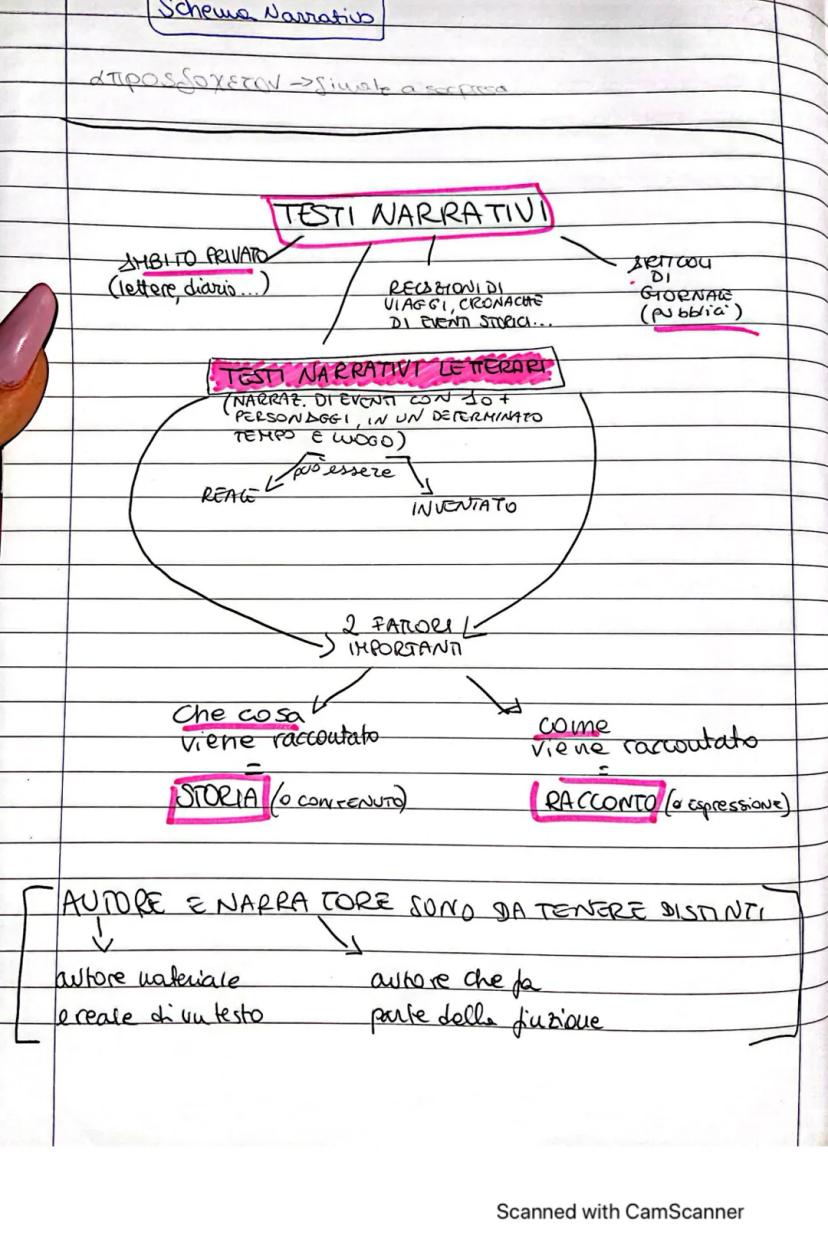 Schema Narrativo
απροσδοχετον → finale a sorpresa
TESTI NARRATIVI
AMBITO PRIVATO
(lettere, diario...)
RECSIONI DI
VIAGGI, CRONACHE
DI EVENTI STORICI...
ARTICOLI
DI
GIORNALE
(pubblici)
TESTI NARRATIVI LETTERARI
(NARRAZ. DI EVENTI CON 1 O +
PERSONAGGI, IN UN DETERMINATO
TEMPO E LUOGO)
può essere
REALE
INVENTATO
2 FATTORI
IMPORTANTI
Che cosa
viene raccontato
=
STORIA (O CONTENUTO)
come
viene raccontato
=
RACCONTO (o espressione)
AUTORE E NARRATORE SONO DA TENERE DISTINTI
autore materiale
e reale di un testo
autore che fa
parte della finzione
Scanned with CamScanner